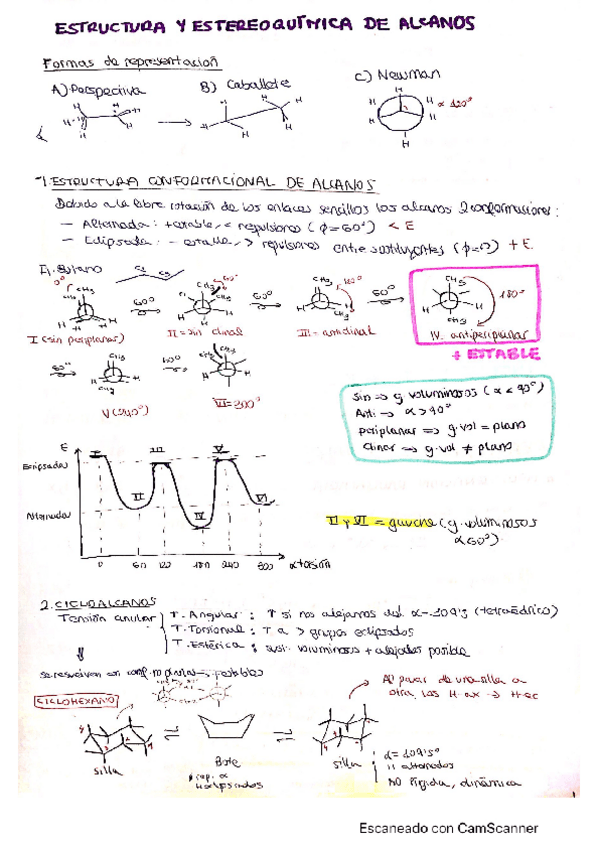 ESTRUCTURA Y ESTEREOQUÍMICA DE ALCANOS
Formas de representación
A) Perspectiva
B) Caballete
C) Newman
α 120°
1. ESTRUCTURA CONFORMACIONAL DE ALCANOS
Debido a la libre rotación de los enlaces sencillos los alcanos 2 conformaciones:
– Alternada: + estable, < repulsiones (ϕ=60°) < E
– Eclipsada: – estable, > repulsiones entre sustituyentes (ϕ=0) + E
Ej. Butano
0°
60°
60°
120°
60°
180°
I (sin periplanar)
II = sin clinal
III = anticlinal
IV. antiperiplanar
+ ESTABLE
60°
60°
V (240°)
VI = 300°
Sin => g. voluminosos (α < 90°)
Anti => α > 90°
periplanar => g. vol = plano
Clinar => g. vol ≠ plano
E
Eclipsada
Alternada
I
II
III
IV
V
VI
0 60 120 180 240 300 α torsión
II y VI = gauche (g. voluminosos
α 60°)
2. CICLOALCANOS
Tensión anular
T. Angular: ↑ si nos alejamos del α = 109'5 (tetraédrico)
T. Torsional: ↑ a > grupos eclipsados
T. Estérica: sust. voluminosos + alejados posible
se resuelven con conf. no planas → estables
CICLOHEXANO
Al pasar de una silla a
otra, los H-ax → H-ec
Silla
Bote
Silla
α = 109'5°
H alternados
NO rígida, dinámica
Escaneado con CamScanner